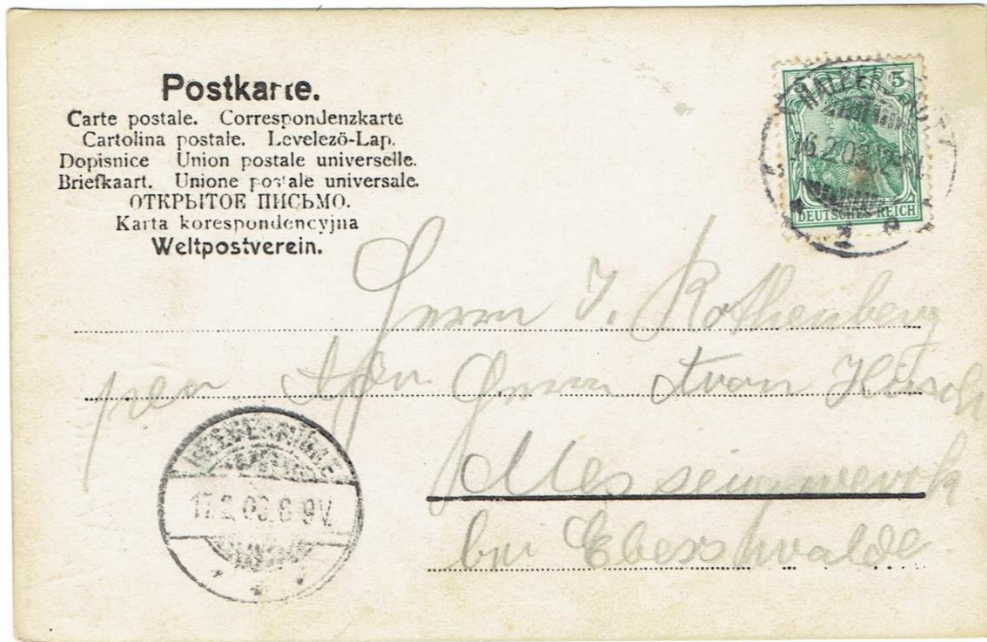 Postkarte.
Carte postale. Correspondenzkarte
Cartolina postale. Levelező-Lap.
Dopisnice Union postale universelle.
Briefkaart. Unione postale universale.
ОТКРЫТОЕ ПИСЬМО.
Karta korespondencyjna
Weltpostverein.
5
DEUTSCHES REICH
16.2.03
Herrn J. Rothenberg
per Adr. Herrn Hirsch
Messingwerk
bei Eberswalde
HEEGERMÜHLE
17.2.03.8-9V.